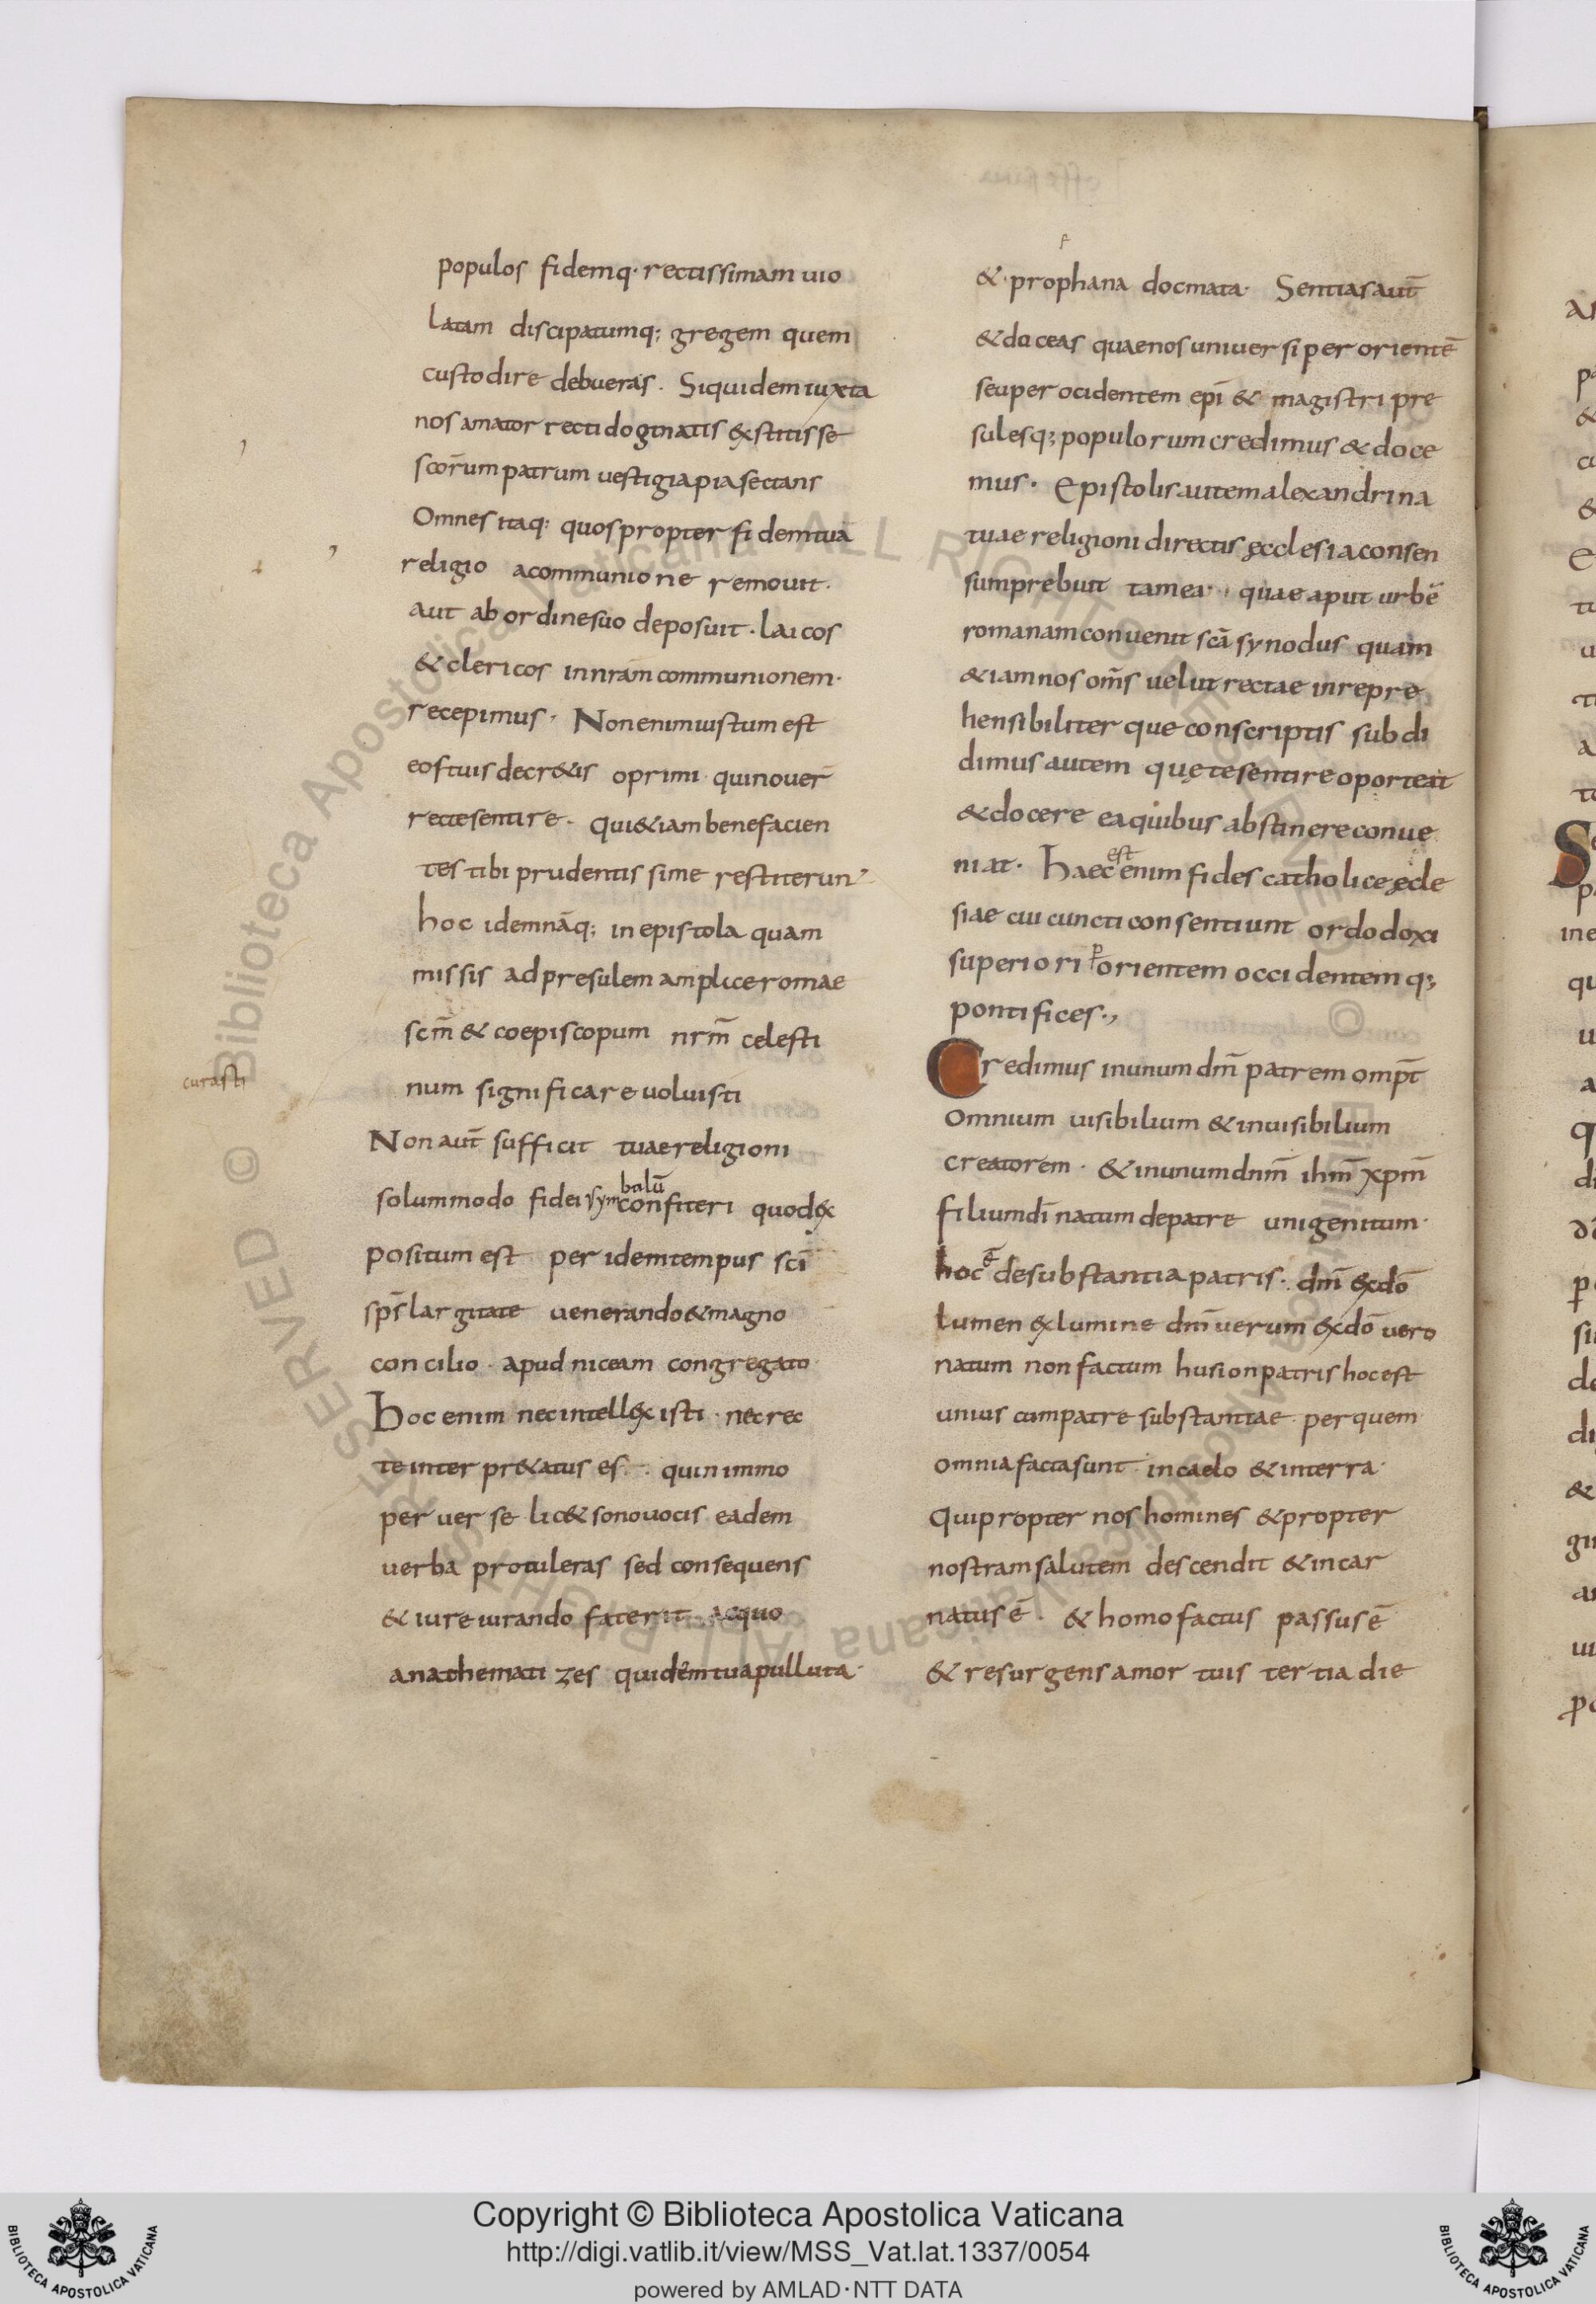 populos fidemq· rectissimam uio
latam discipatumq; gregem quem
custodire debueras. Siquidem iuxta
nos amator recti dogmatis exstitisse
scōrum patrum uestigia pia sectans
Omnes itaq; quos propter fidem tuā
religio a communione remouit.
aut ab ordine suo deposuit. laicos
& clericos in nrām communionem.
recepimus. Non enim iustum est
eos tuis decr&is oprimi quinouer̄
recte sentire. qui&iam bene facien
tes tibi prudentissime restiterun
hoc idemnāq; in epistola quam
missis ad presulem amplice romae
scm̄ & coepiscopum nrm̄ celesti
num significare uoluisti
curasti
Non aut̄ sufficit tuae religioni
solummodo fidei symbalū confiteri quod ex
positum est per idem tempus scī
sps̄ largitate uenerando & magno
concilio. apud niceam congregato
Hoc enim nec intellexisti. nec rec
te interpr&atus es. quin immo
peruerse lic& sono uocis eadem
uerba protuleras sed consequens
& iureiurando faterit acquo
anathematizes quidem tua pulluta
&·prophana docmata. Sentias aut̄
& doceas quae nos uniuersi per orientē
seu per ocidentem epī & magistri pre
sulesq; populorum credimus & doce
mus. Epistolis autem alexandrina
tuae religioni directis ęcclesia consen
sum prebuit tamea. quae aput urbē
romanam conuenit scā synodus quam
& iam nos om̄s uelut rectae inrepre
hensibiliter que conscriptis subdi
dimus autem quę te sentire oporteat
& docere ea quibus abstinere conue
niat. Haec est enim fides catholice ęcle
siae cui cuncti consentiunt ordodoxi
superiori p̄ orientem occidentemq;
pontifices.,
Credimus in unum dm̄ patrem omp̄t
Omnium uisibilium & inuisibilium
creatorem. & in unum dnm̄ ihm̄ xpm̄
filium dī natum de patre unigenitum.
hoc ē de substantia patris. dm̄ ex dō
lumen ex lumine dm̄ uerum ex dō uero
natum non factum husion patris hoc est
unius cum patre substantiae per quem
omnia facta sunt in caelo & in terra.
Qui propter nos homines & propter
nostram salutem descendit & incar
natus ē. & homo factus passus ē
& resurgens amortuis tertia die
Copyright © Biblioteca Apostolica Vaticana
http://digi.vatlib.it/view/MSS_Vat.lat.1337/0054
powered by AMLAD·NTT DATA